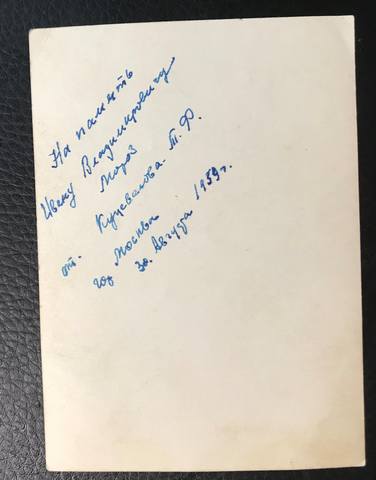 На память
Ивану Владимировичу
Мороз
от. Куцевалова. Т. Ф.
гор Москва
30. Августа 1959 г.